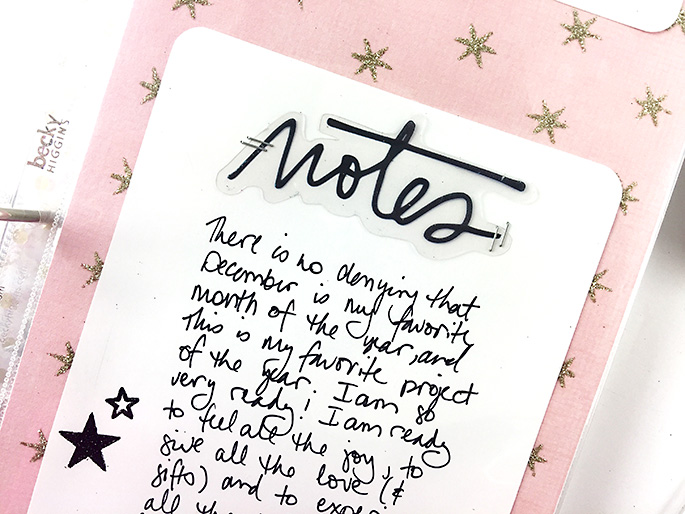 becky
HIGGINS
notes
There is no denying that
December is my favorite
month of the year, and
this is my favorite project
of the year. I am so
very ready! I am ready
to feel all the joy, to
give all the love (&
gifts) and to
all